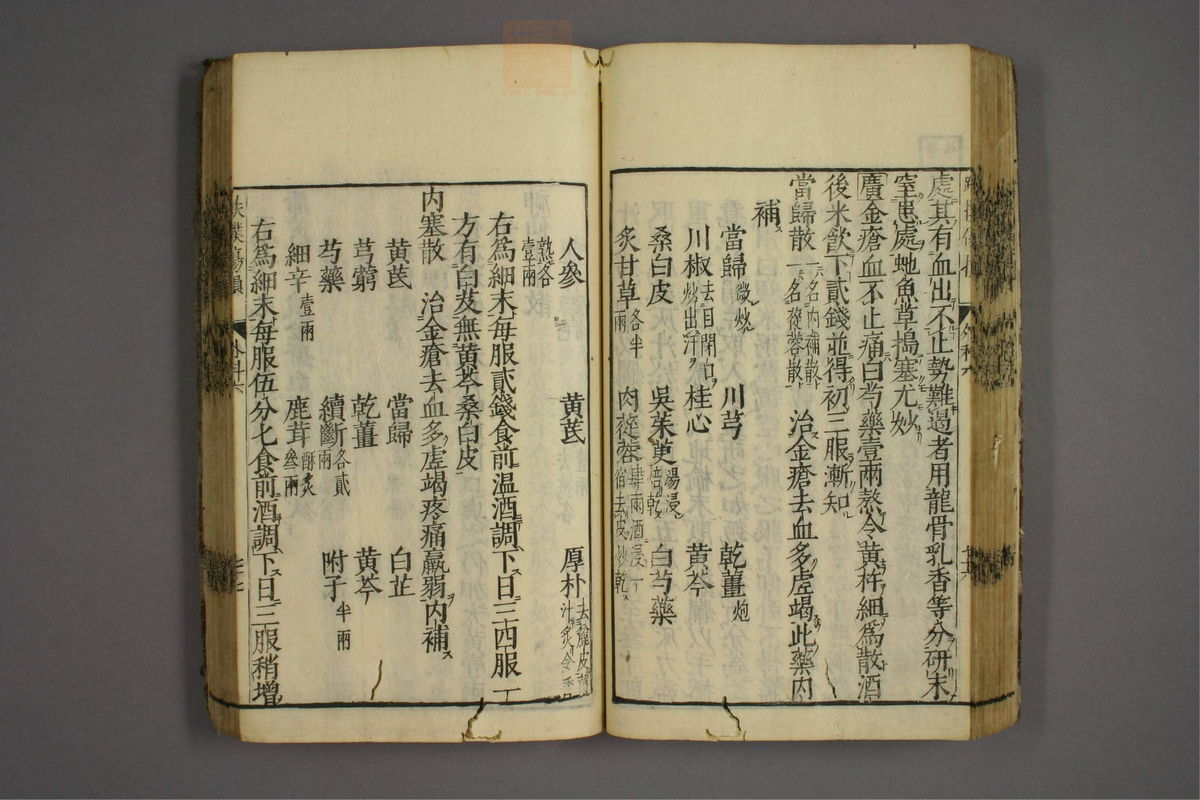 處其有血出不止勢難遏者用龍骨乳香等分研末
窒患處虵魚草搗塞尤妙
廣金瘡血不止痛白芍藥壹兩熬令黃杵細爲散酒
後米飲下貳錢並得初三服漸知
當歸散一名內補散一名蓯蓉散 治金瘡去血多虗竭此藥內
補
當歸微炒 川芎 乾薑炮
川椒去目閉口炒出汗 桂心 黃芩
桑白皮 吳茱萸湯浸焙乾 白芍藥
炙甘草各半兩 肉蓯蓉肆兩酒浸一宿去皮炒乾
人參 黃芪 厚朴去麄皮薑汁炙令香
熟各壹兩
右爲細末每服貳錢食前温酒調下日三四服一
方有白芨無黃芩桑白皮
內塞散 治金瘡去血多虗竭疼痛羸弱內補
黃芪 當歸 白芷
芎藭 乾薑 黃芩
芍藥 續斷各貳兩 附子半兩
細辛壹兩 鹿茸酥炙叄兩
右爲細末每服伍分匕食前酒調下日三服稍增
跌撲傷損 外科六